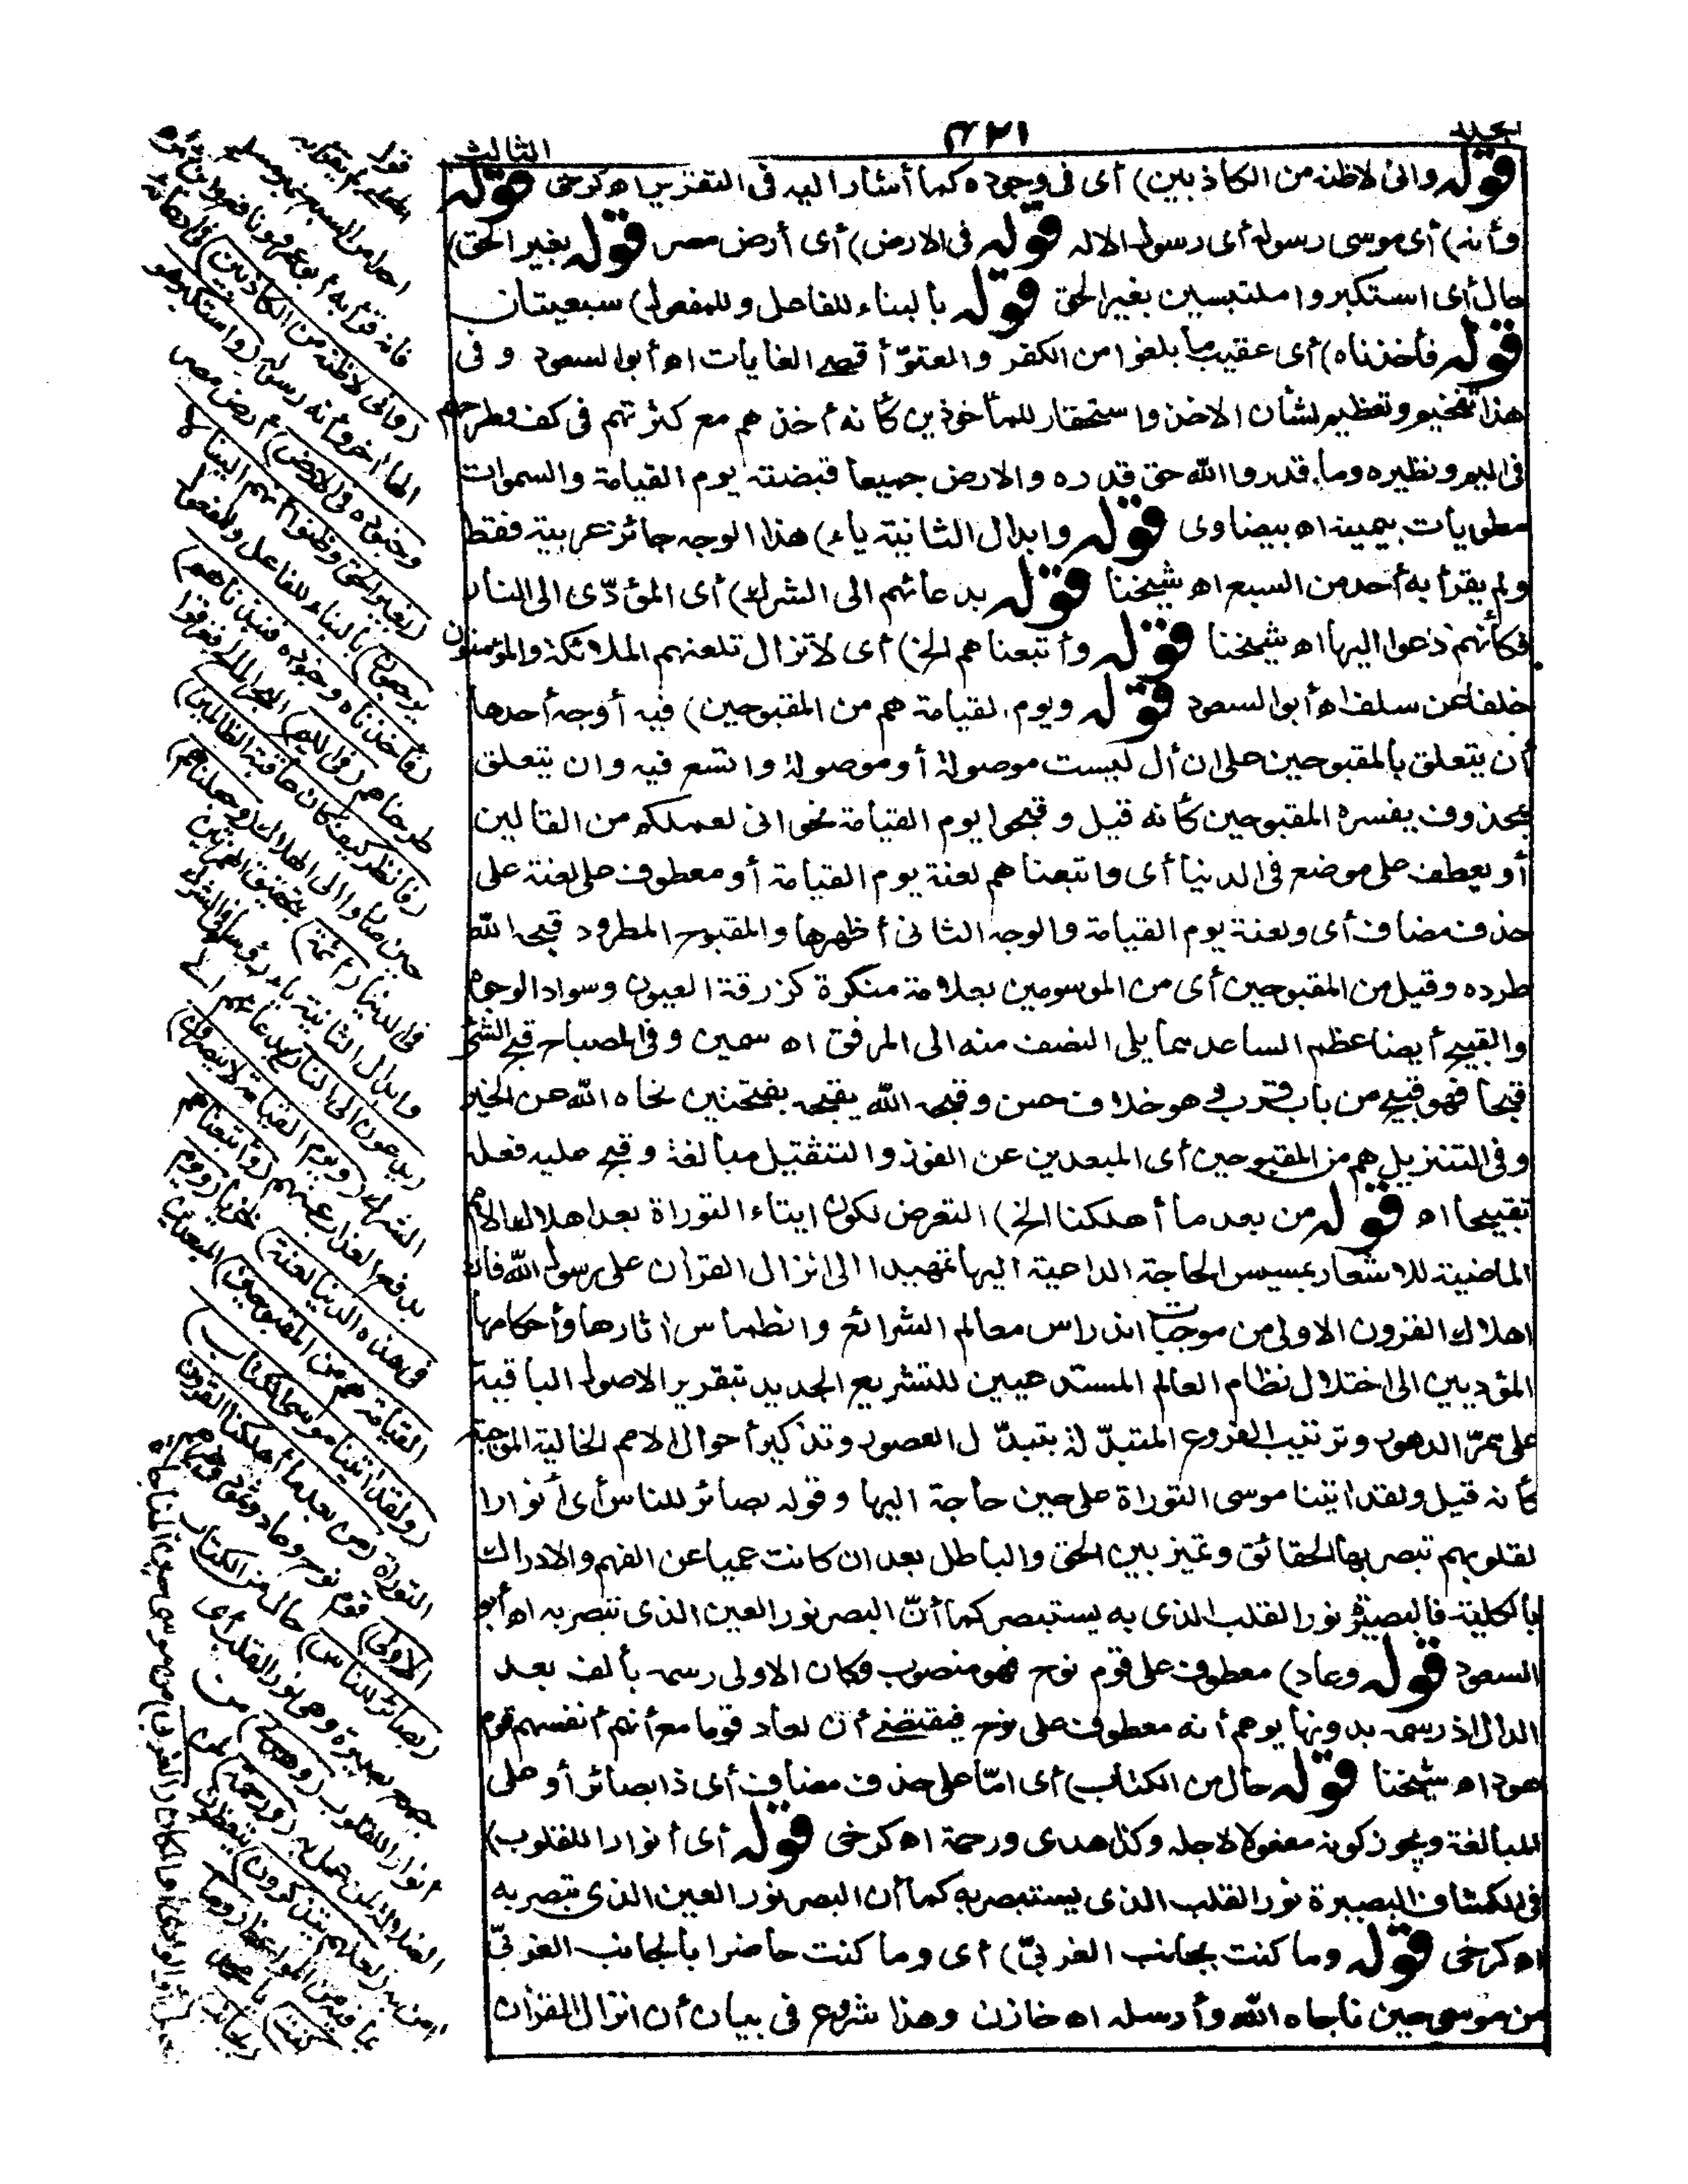 المجلد
٤٢١
الثالث
قوله وانى لاظنه من الكاذبين) أى فى وجوده كما أشار اليه فى التقرير اه كرخى قوله
وأنه) أى موسى رسوله أى رسول الاله قوله فى الارض) أى أرض مصر قوله بغير الحق)
حال أى استكبروا ملتبسين بغير الحق قوله بالبناء للفاعل وللمفعول) سبعيتان
قوله فأخذناه) أى عقيب ما بلغوا من الكفر والعتوّ أقصى الغايات اه أبو السعود وفى
هذا تفخيم وتعظيم لشأن الاخذ واستحقار للمأخوذين كأنه أخذهم مع كثرتهم فى كف وطرحهم
فى اليم ونظيره وما قدروا الله حق قدره والارض جميعا قبضته يوم القيامة والسموات
مطويات بيمينه اه بيضاوى قوله وابدال الثانية ياء) هذا الوجه جائز عربية فقط
ولم يقرأ به أحد من السبع اه شيخنا قوله بدعائهم الى الشرك) أى المؤدّى الى النار
فكأنهم دعوا اليها اه شيخنا قوله وأتبعناهم الخ) أى لا تزال تلعنهم الملائكة والمؤمنون
خلفا عن سلف اه أبو السعود قوله ويوم القيامة هم من المقبوحين) فيه أوجه أحدها
أن يتعلق بالمقبوحين على ان أل ليست موصولة أو موصولة واتسع فيه وان يتعلق
بمحذوف يفسره المقبوحين كأنه قيل وقبحوا يوم القيامة نحو انى لعملكم من القالين
أو يعطف على موضع فى الدنيا أى واتبعناهم لعنة يوم القيامة أو معطوف على لعنة على
حذف مضاف أى ولعنة يوم القيامة والوجه الثانى أظهرها والمقبوح المطرود قبحه الله
طرده وقيل من المقبوحين أى من الموسومين بعلامة منكرة كزرقة العيون وسواد الوجوه
والقبيح أيضا عظم الساعد مما يلى النصف منه الى المرفق اه سمين وفى المصباح قبح الشئ
قبحا فهو قبيح من باب قرب وهو خلاف حسن وقبحه الله يقبحه بفتحتين نحاه الله عن الخير
وفى التنزيل هم من المقبوحين أى المبعدين عن الفوز والتثقيل مبالغة وقبح عليه فعله
تقبيحا اه قوله من بعد ما أهلكنا الخ) التعرض لكون ايتاء التوراة بعد اهلاك الامم
الماضية للاشعار بمسيس الحاجة الداعية اليها تمهيدا الى انزال القرآن على رسول الله فان
اهلاك القرون الاولى من موجبات اندراس معالم الشرائع وانطماس اثارها وأحكامها
المؤديين الى اختلال نظام العالم المستدعيين للتشريع الجديد بتقرير الاصول الباقية
على ممرّ الدهور وترتيب الفروع المتبدّلة بتبدّل العصور وتذكير أحوال الامم الخالية الموجبة
كأنه قيل ولقد اتينا موسى التوراة على حين حاجة اليها وقوله بصائر للناس أى أنوارا
لقلوبهم تبصر بها الحقائق وتميز بين الحق والباطل بعد ان كانت عميا عن الفهم والادراك
بالكلية فالبصيرة نور القلب الذى به يستبصر كما أنّ البصر نور العين الذى تبصر به اه أبو
السعود قوله وعاد) معطوف على قوم نوح فهو منصوب وكان الاولى رسمه بألف بعد
الدال اذ رسمه بدونها يوهم أنه معطوف على نوح فيقتضى أن لعاد قوما مع أنهم أنفسهم قوم
هود اه شيخنا قوله حال من الكتاب) أى امّا على حذف مضاف أى ذا بصائر أو على
المبالغة ويجوز كونه مفعولا لاجله وكذا هدى ورحمة اه كرخى قوله أى أنوارا للقلوب)
فى الكشاف البصيرة نور القلب الذى يستبصر به كما أن البصر نور العين الذى تبصر به
اه كرخى قوله وما كنت بجانب الغربىّ) أى وما كنت حاضرا بالجانب الغربىّ
من موسى حين ناجاه الله وأرسله اه خازن وهذا شروع فى بيان أن انزال القرآن
(وانى لاظنه من الكاذبين) فى ادعائه
الها اخر وأنه رسوله (واستكبر هو
وجنوده فى الارض) أرض مصر
(بغير الحق وظنوا أنهم الينا لا
يرجعون) بالبناء للفاعل وللمفعول
(فأخذناه وجنوده فنبذناهم)
طرحناهم (فى اليم) البحر المالح فغرقوا
(فانظر كيف كان عاقبة الظالمين)
حين صاروا الى الهلاك (وجعلناهم)
فى الدنيا (أئمة) بتحقيق الهمزتين
وابدال الثانية ياء رؤساء فى الشرك
(يدعون الى النار) بدعائهم الى
الشرك (ويوم القيامة لا ينصرون)
بدفع العذاب عنهم (وأتبعناهم
فى هذه الدنيا لعنة) خزيا (ويوم
القيامة هم من المقبوحين) المبعدين
(ولقد اتينا موسى الكتاب)
التوراة (من بعد ما أهلكنا القرون
الاولى) قوم نوح وعاد وثمود وغيرهم
(بصائر للناس) حال من الكتاب
جمع بصيرة وهى نور القلب أى
أنوارا للقلوب (وهدى) من
الضلالة لمن عمل به (ورحمة) لمن
امن به (لعلهم يتذكرون) يتعظون
بما فيه من المواعظ (وما
كنت) يا محمد
(بجانب)